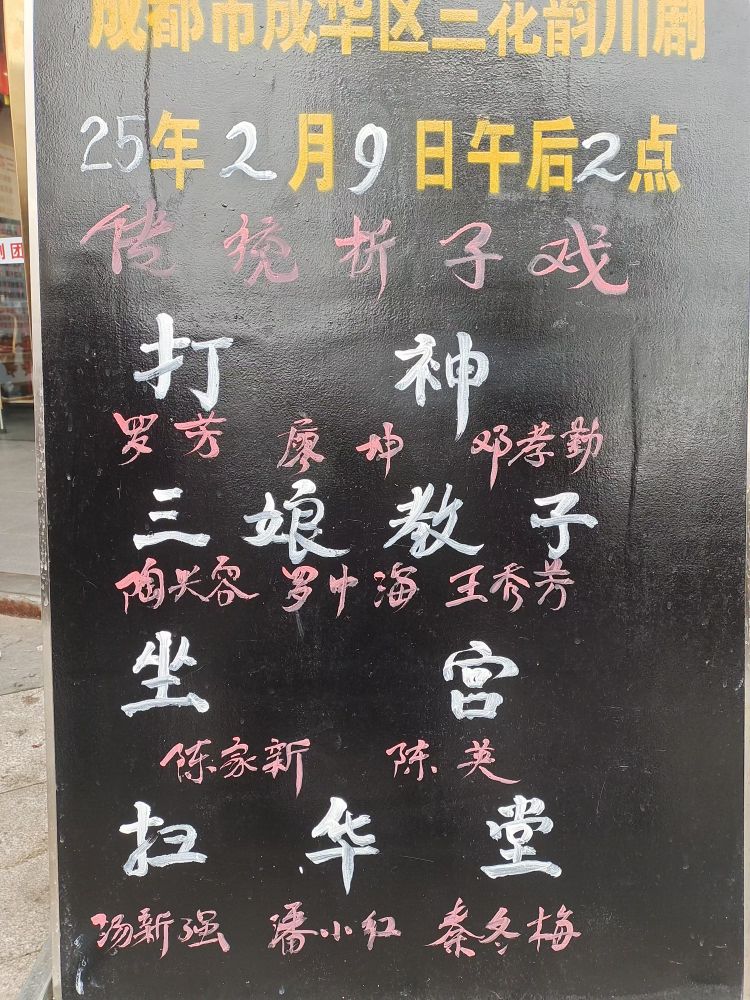 成都市成华区三花韵川剧
25年2月9日午后2点
传统折子戏
打神
罗芳 廖坤 邓孝勤
三娘教子
陶兴容 罗中海 王秀芳
坐宫
陈家新 陈英
扫华堂
汤新强 潘小红 秦冬梅
剧团